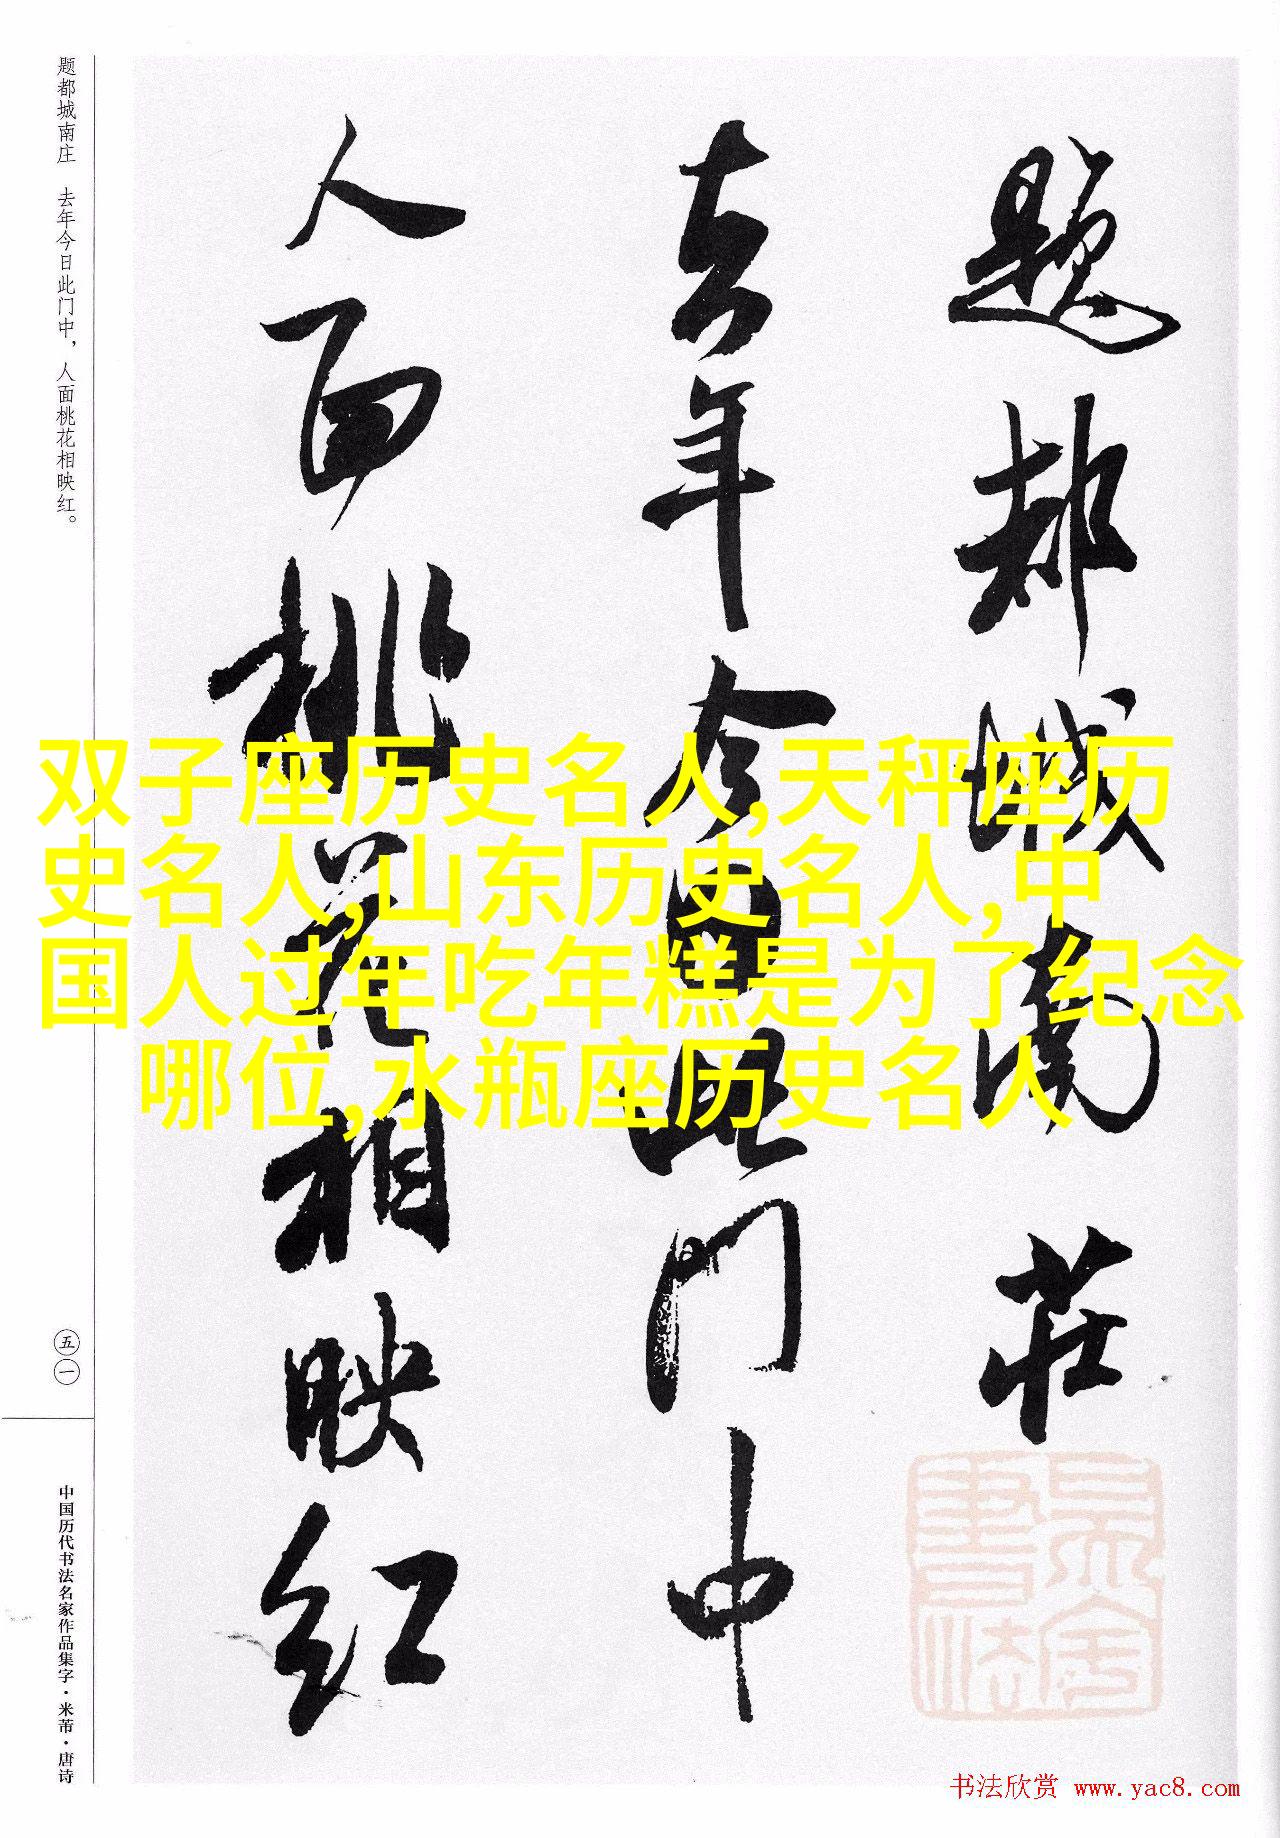 题都城南庄　去年今日此门中，人面桃花相映红。
题都城南莊
去年今日此门中
人面桃花相映红
双子座历史名人,天秤座历
史名人,山东历史名人,中
国人过年吃年糕是为了纪念
哪位,水瓶座历史名人
五一
中国历代书法名家作品集字·米芾·唐诗
书法欣赏 www.yac8.com